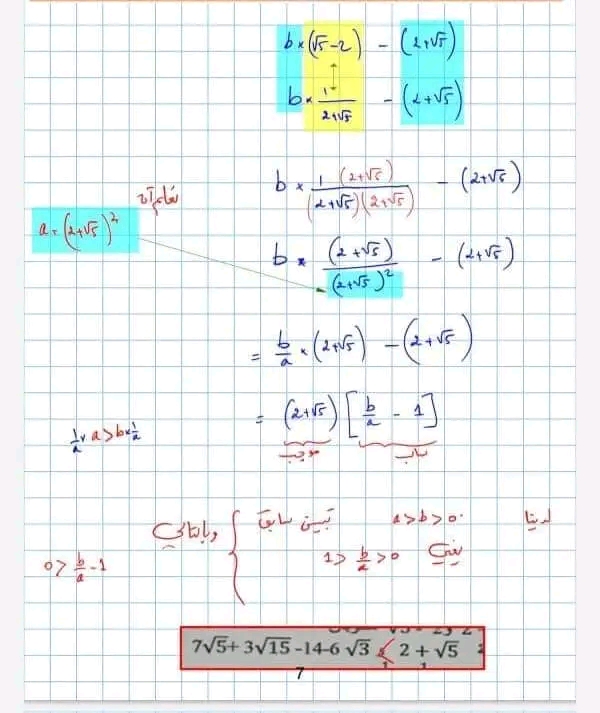 b × (√5 - 2) - (2+√5)
b × 1/(2+√5) - (2+√5)
b × 1 (2+√5)/((2+√5)(2+√5)) - (2+√5)
نعلم أن
a = (2+√5)²
b × (2+√5)/(2+√5)² - (2+√5)
= b/a × (2+√5) - (2+√5)
= (2+√5) [b/a - 1]
موجب سالب
1/a × a > b × 1/a
لدينا a > b > 0 تبيين سابق
يعني 1 > b/a > 0
وبالتالي
0 > b/a - 1
7√5 + 3√15 -14-6 √3 < 2 + √5
7